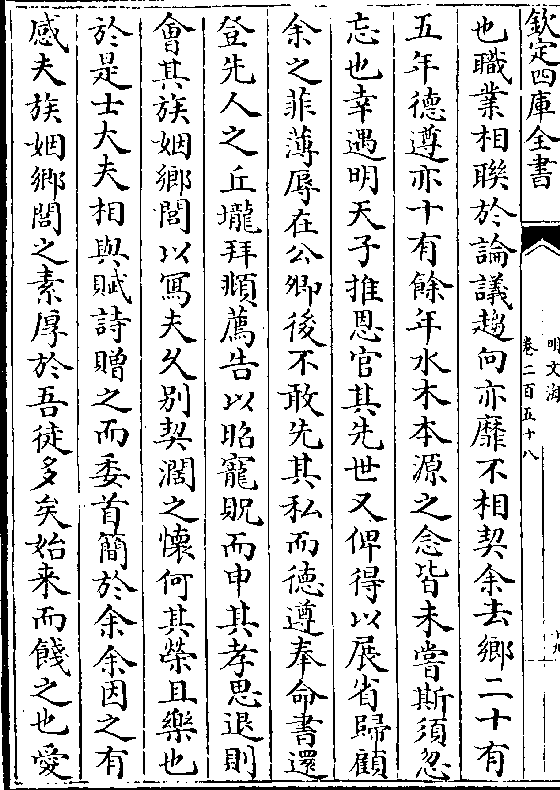 欽定四庫全書
明文海
卷二百五十八
也職業相聯於論議趨向亦靡不相契余去鄉二十有
五年德遵亦十有餘年水木本源之念皆未嘗斯須忽
忘也幸遇明天子推恩官其先世又俾得以展省歸顧
余之菲薄辱在公卿後不敢先其私而德遵奉命書還
登先人之丘壠拜頫薦告以昭寵貺而申其孝思退則
會其族姻鄉閭以冩夫久别契濶之懷何其榮且樂也
於是士大夫相與賦詩贈之而委首簡於余余因之有
感夫族姻鄉閭之素厚於吾徒多矣始来而餞之也愛